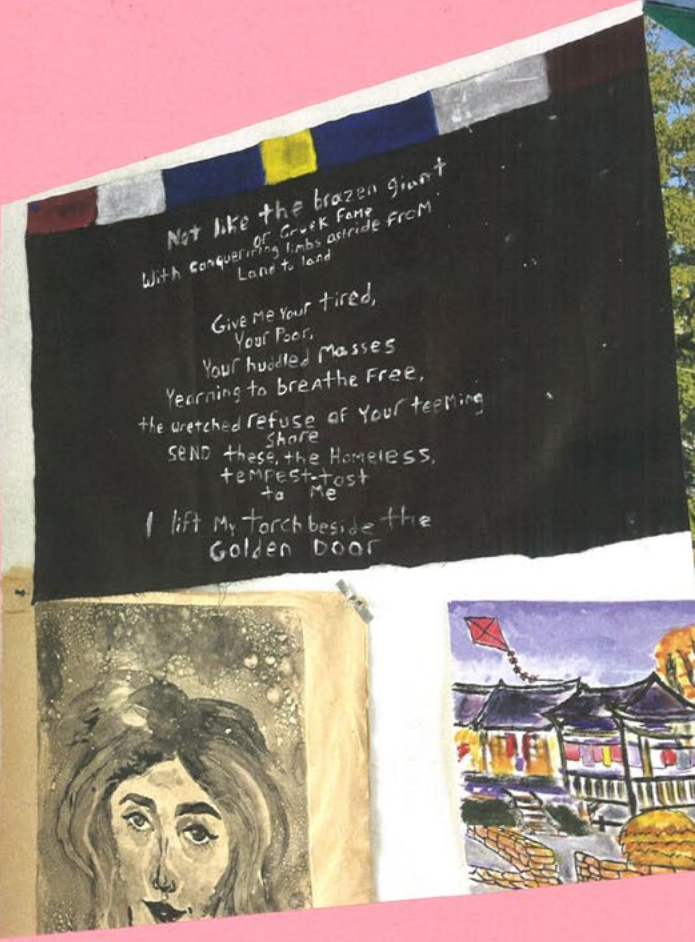 Not like the brazen giant
of Greek Fame
With conquerining limbs astride from
Land to land
Give me Your tired,
Your Poor,
Your huddled Masses
Yearning to breathe Free,
the wretched refuse of Your teeming
shore
SEND these, the Homeless,
tempest-tost
to Me
I lift My torch beside the
Golden Door